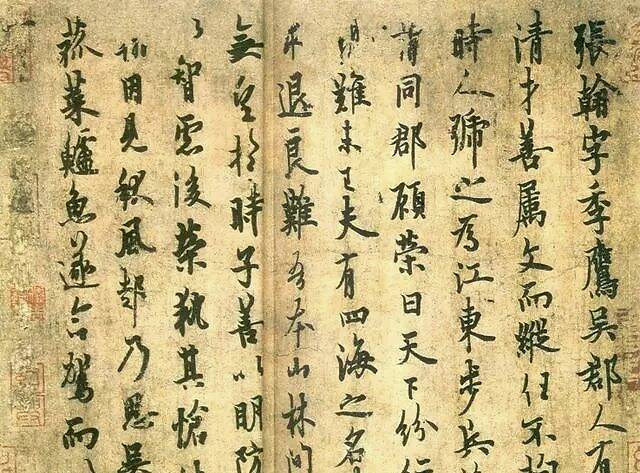 張翰字季鷹吳郡人有
清才善屬文而縱任不拘
時人號之為江東步兵
謂同郡顧榮曰天下紛紜
難未已夫有四海之名
求退良難吾本山林間
無望於時子善以明防
以智慮後榮執其愴
翰因見秋風起乃思吳
菰菜鱸魚遂命駕而